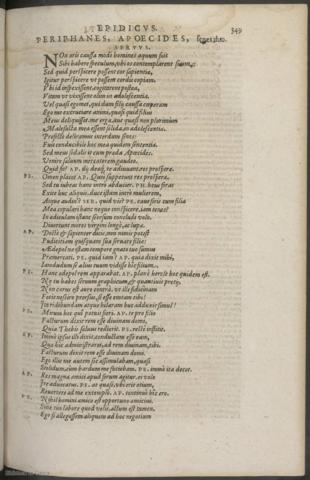 EPIDICVS.
349
PERIPHANES, APOECIDES, senes duo.
SERVVS.
NOn oris caussa modo homines aequum fuit
Sibi habere speculum, vbi os contemplarent suum,
Sed quid perspicere possent cor sapientiæ,
Igitur perspicere vt possint cordis copiam
Vbi id inspexissent, cogitarent postea,
Vitam vt vixissent olim in adolescentia.
Vel quasi egomet, qui dum filij caussa cœperam
Ego me excruciare animi, quasi quid filius
Meus deliquisset me erga, aut quasi non plurima
Malefacta mea essent solida in adolescentia.
Profecto deliramus interdum senes:
Fuit conducibile hoc mea quidem sententia.
Sed meus sodalis it cum præda Apœcides.
Venire saluum mercatorem gaudeo.
Quid fit? AP. dij deæq́ te adiuuant. res prospera.
PE. Omen placet AP. Quin suppetunt res prosperæ.
Sed tu iubeas hanc intrò abducier. PE. heus foras
Exite huc aliquis. duce istam intrò mulierem,
Atque audin'? SER. quid vis? PE. caue siris cum filia
Mea copulari hanc neque conspicere, iam tenes?
In ædiculam istanc seorsum concludi volo.
Diuortunt mores virgini longè, ac lupæ.
AP. Doctè & sapienter dicis, non nimis potest
Pudicitiam quisquam suæ seruare filiæ:
Aedepol ne istam tempore gnato tuo sumus
Præmercati. PE. quid iam? AP. quia dixit mihi,
Iamdudum se alius tuum vidisse hîc filium.
PE. Hanc edepol rem apparabat. AP. planè hercle hoc quidem est.
Ne tu habes seruum graphicum, & quantiuis preti,
Non carus est auro contrà. vt ille fidicinam
Fecit nescire prorsus, se esse emtam tibi!
Ita ridibundam atque hilaram huc adduxit simul!
PE. Mirum hoc quî potuit fieri. AP. te pro filio
Facturum dixit rem esse diuinam domi,
Quia Thebis saluus redierit. PE. rectè institit.
AP. Immò ipsus illi dixit, conductam esse eam,
Quæ hîc administraret, ad rem diuinam, tibi.
Facturum dixit rem esse diuinam domi.
Ego illic me autem sic assimulabam, quasi
Stolidum, cum bardum me faciebam. PE. immò ita decet.
AP. Res magna amici apud forum agitur, ei volo
Ire aduocatus. PE. at quæso, vbi erit otium,
Reuortere ad me extemplò. AP. continuò hîc ero.
PE. Nihil homini amico est opportuno amicius.
Sine tuo labore quod velis, actum est tamen.
Ego si allegassem aliquem ad hoc negotium